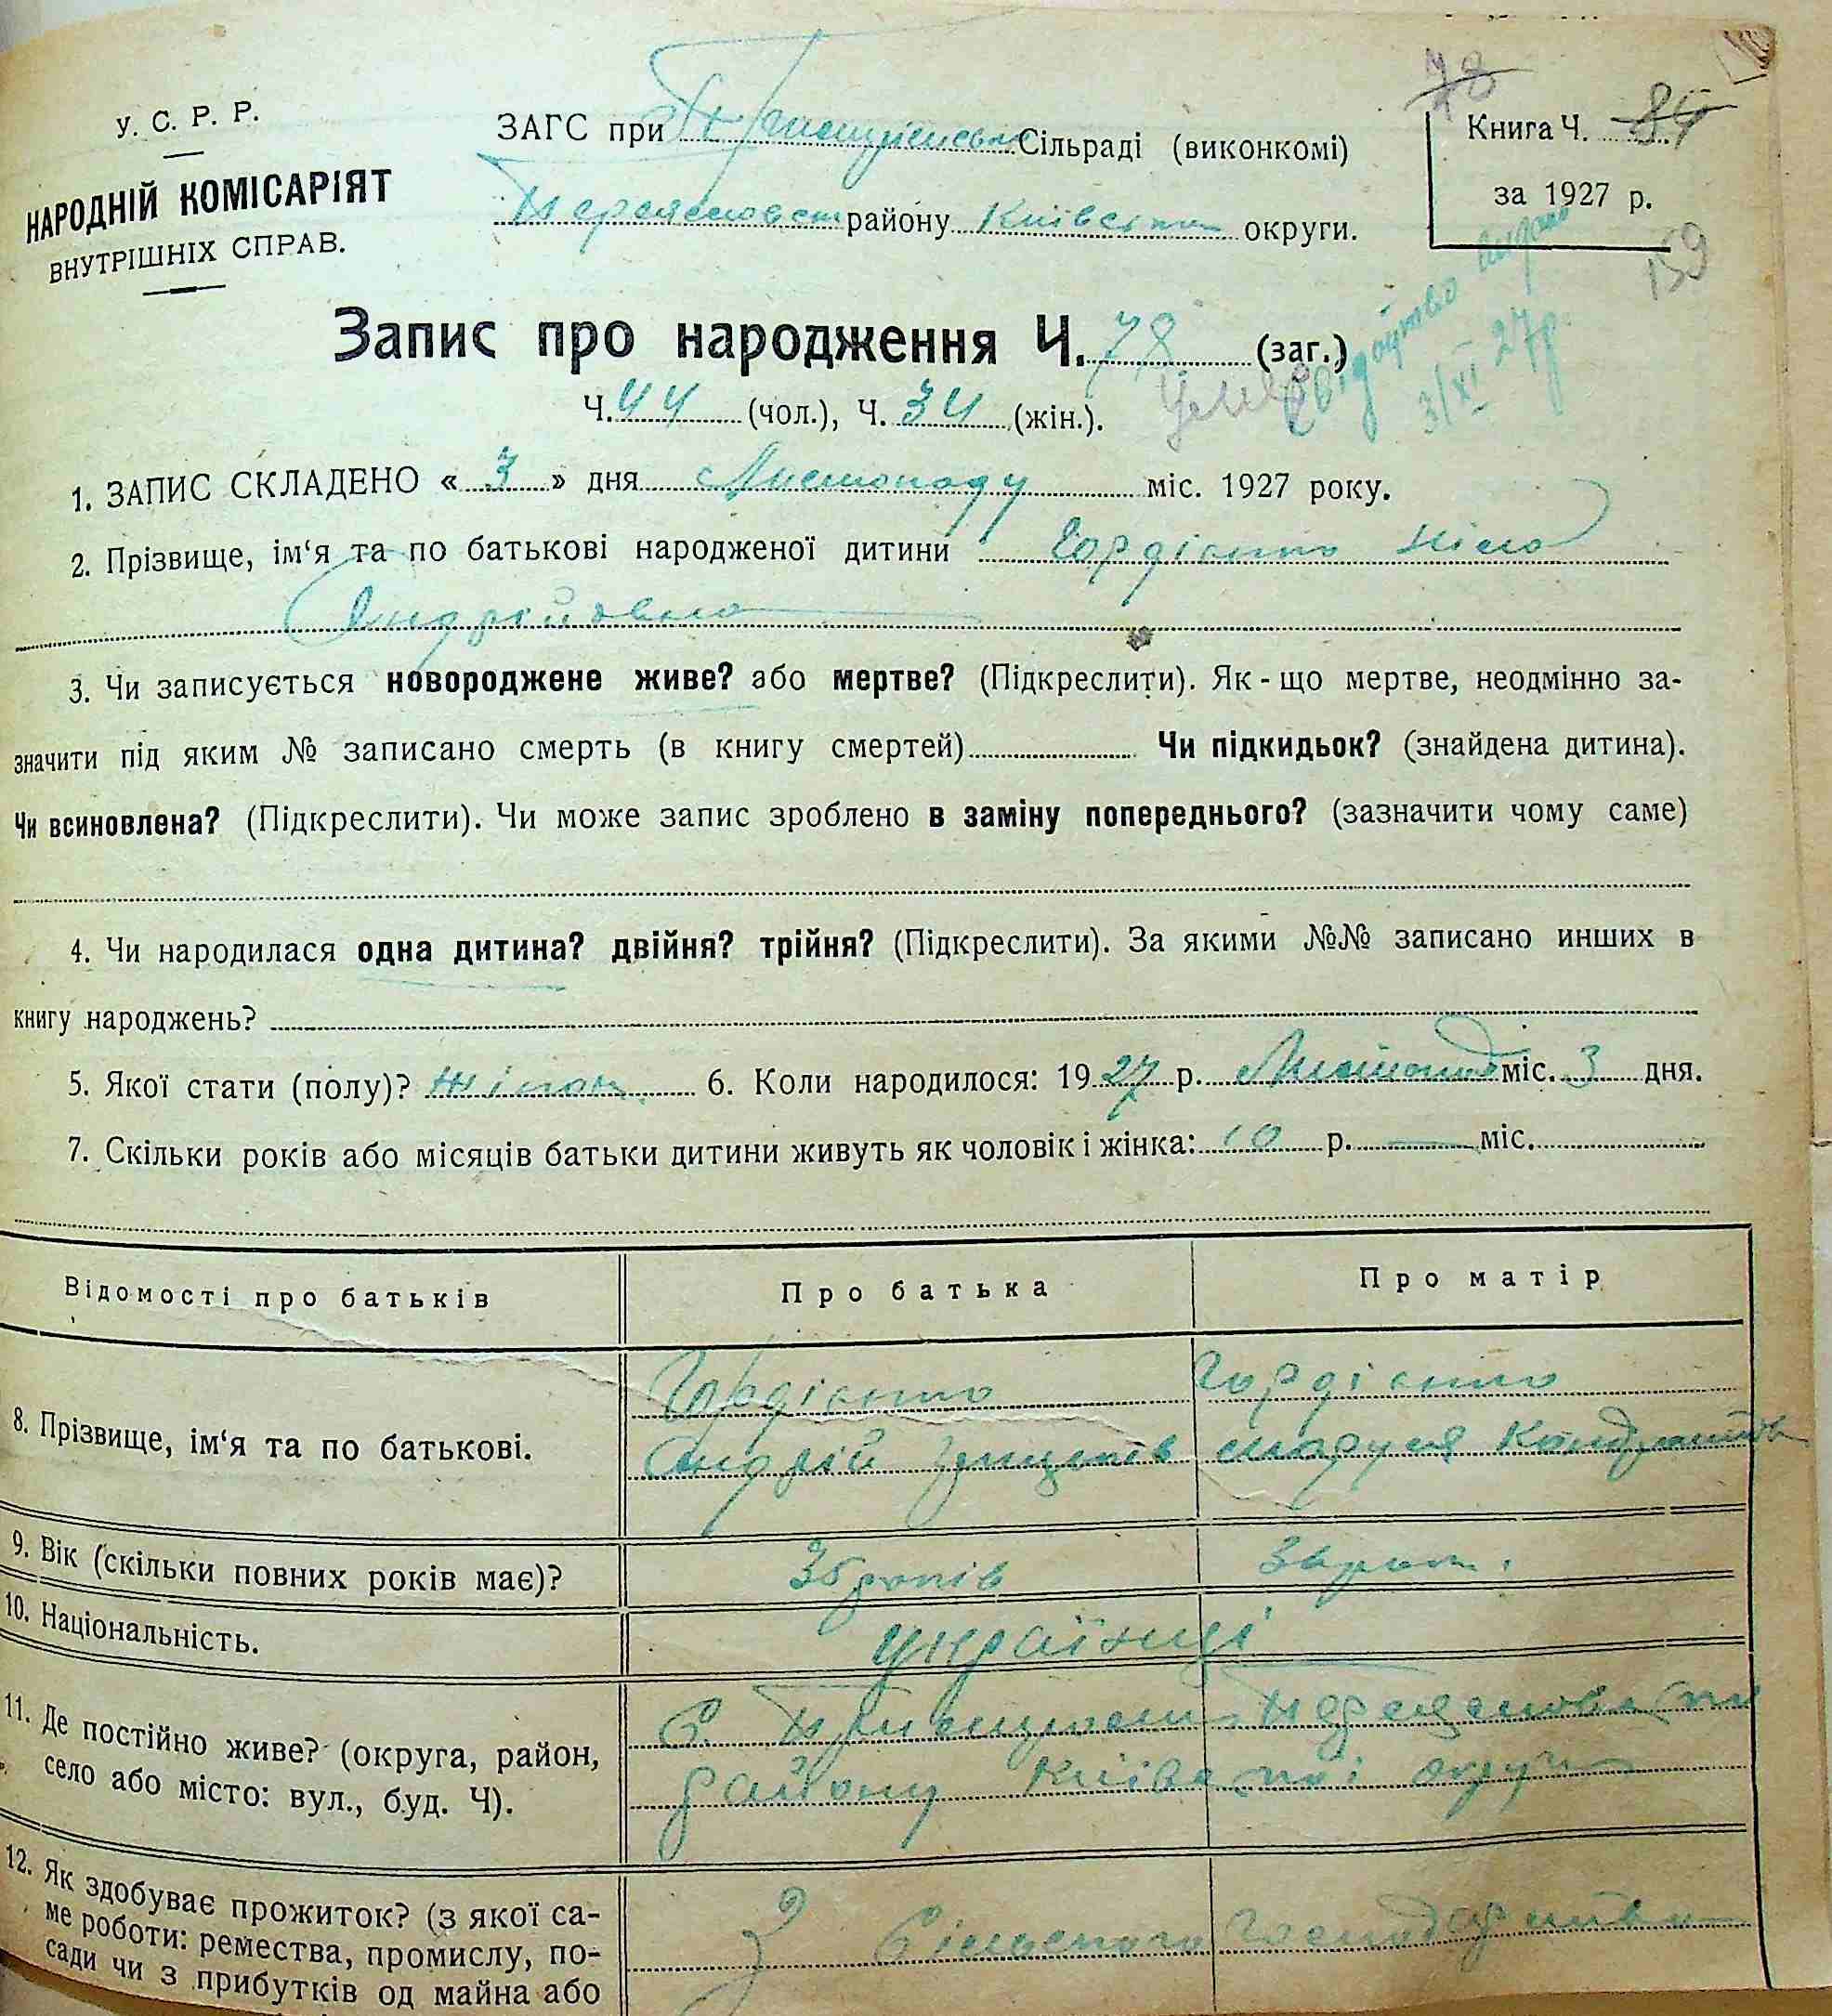 У. С. Р. Р.
НАРОДНІЙ КОМІСАРІЯТ
ВНУТРІШНІХ СПРАВ.
ЗАГС при Сільраді (виконкомі)
району округи.
78
Книга Ч. 84
за 1927 р.
159
Свідоцтво видано
3/XI 27р.
Запис про народження Ч. 78 (заг.)
Ч. 44 (чол.), Ч. 34 (жін.).
1. ЗАПИС СКЛАДЕНО « 3 » дня Листопаду міс. 1927 року.
2. Прізвище, ім‘я та по батькові народженої дитини Гордієнко
Андрійовна
3. Чи записується новороджене живе? або мертве? (Підкреслити). Як - що мертве, неодмінно за-
значити під яким № записано смерть (в книгу смертей) Чи підкидьок? (знайдена дитина).
Чи всиновлена? (Підкреслити). Чи може запис зроблено в заміну попереднього? (зазначити чому саме)
4. Чи народилася одна дитина? двійня? трійня? (Підкреслити). За якими №№ записано инших в
книгу народжень?
5. Якої стати (полу)? 6. Коли народилося: 1927 р. Листопад міс. 3 дня.
7. Скільки років або місяців батьки дитини живуть як чоловік і жінка: 10 р. — міс.
Відомості про батьків Про батька Про матір
8. Прізвище, ім‘я та по батькові.
Гордієнко Гордієнко
Андрій Грицьків Маруся
9. Вік (скільки повних років має)? 35 років
10. Національність. українці
11. Де постійно живе? (округа, район,
село або місто: вул., буд. Ч).
С.
району Київської округи
12. Як здобуває прожиток? (з якої са-
ме роботи: ремества, промислу, по-
сади чи з прибутків од майна або
З Сільського господарства